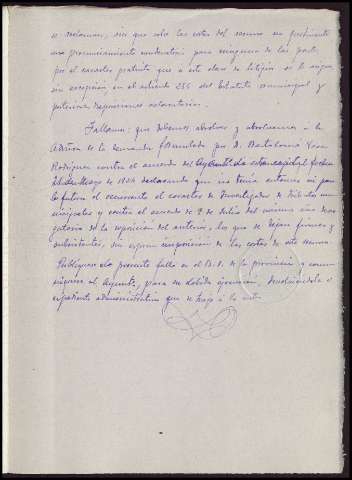 se reclaman, sin que sobre las costas del recurso sea procedente
un pronunciamiento condenatorio para ninguna de las partes
por el caracter gratuito que a esta clase de litigios se le asigna,
sin excepción, en el articulo 256 del Estatuto municipal y
posteriores disposiciones aclaratorias.
Fallamos: que debemos absolver y absolvemos a la
Admón de la demanda formulada por D. Bartolomé
Rodriguez contra el acuerdo del Aytmto de esta capital fecha
de Mayo de 1924 declarando que no tenia entonces ni para
lo futuro el recurrente el caracter de Investigador de Tributos mu-
nicipales y contra el acuerdo de 9 de Julio del mismo año dene-
gatorio de la reposición del anterior, los que se dejan firmes y
subsistentes, sin expresa imposición de las costas de este recurso.
Publiquese el presente fallo en el B.O. de la provincia y comu-
niquese al Aytmto, para su debida ejecución, devolviendole el
expediente administrativo que se trajo a la vista